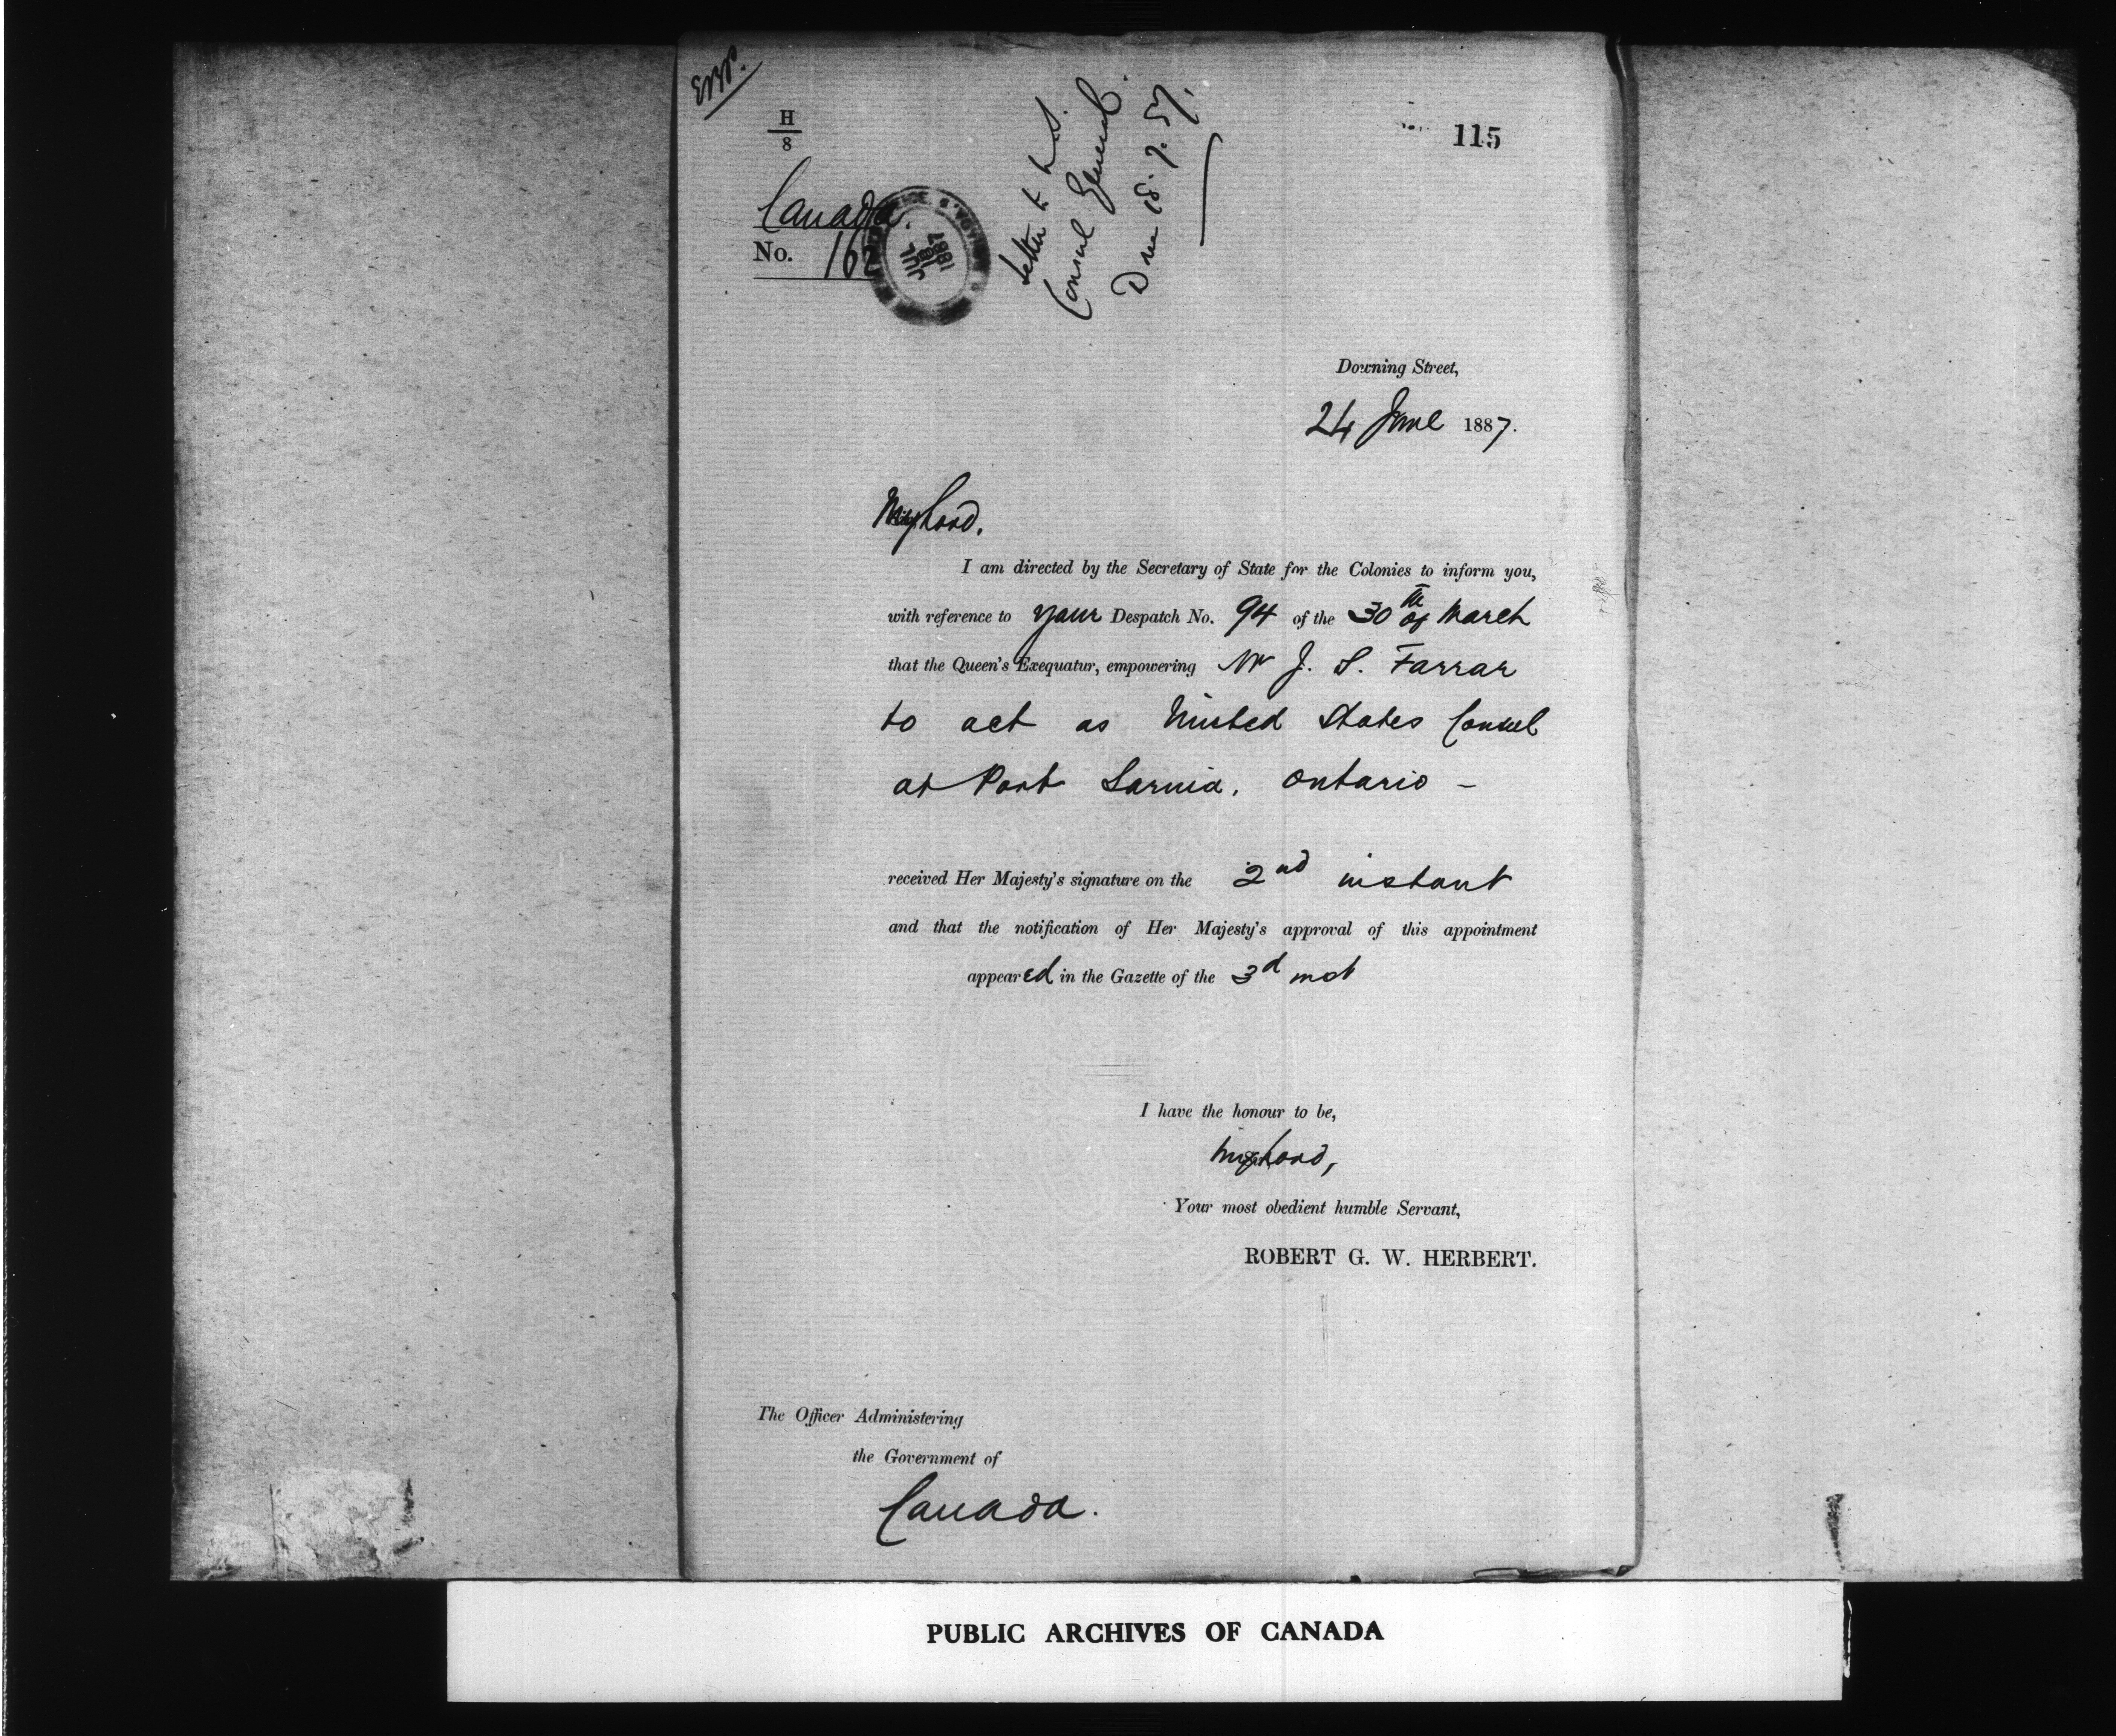 H
8
115
Canada.
No. 162
JUL
1887
Letter to U.S.
Consul General.
18.7.87.
Downing Street,
24 June 1887.
My Lord,
I am directed by the Secretary of State for the Colonies to inform you,
with reference to your Despatch No. 94 of the 30th of March
that the Queen's Exequatur, empowering Mr J. S. Farrar
to act as United States Consul
at Port Sarnia, Ontario -
received Her Majesty's signature on the 2nd instant
and that the notification of Her Majesty's approval of this appointment
appeared in the Gazette of the 3d inst
I have the honour to be,
My Lord,
Your most obedient humble Servant,
ROBERT G. W. HERBERT.
The Officer Administering
the Government of
Canada.
PUBLIC ARCHIVES OF CANADA